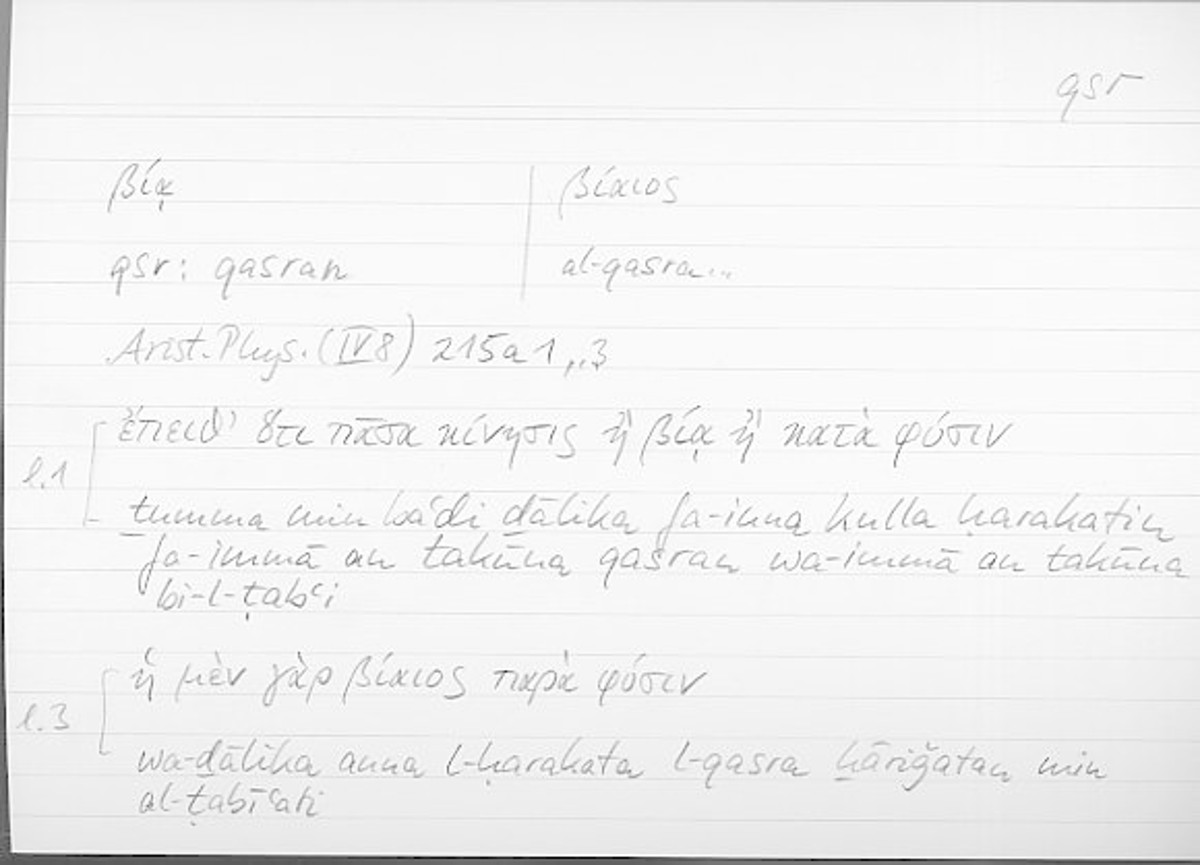 qsr
βίᾳ | βίαιος
qsr: qasran | al-qasra...
Arist. Phys. (IV 8) 215a1,,3
l.1 ἔπειθ' ὅτι πᾶσα κίνησις ἢ βίᾳ ἢ κατὰ φύσιν
ṯumma min baʿdi ḏālika fa-inna kulla ḥarakatin
fa-immā an takūna qasran wa-immā an takūna
bi-l-ṭabʿi
l.3 ἡ μὲν γὰρ βίαιος παρὰ φύσιν
wa-ḏālika anna l-ḥarakata l-qasra ḫāriǧatan min
al-ṭabīʿati